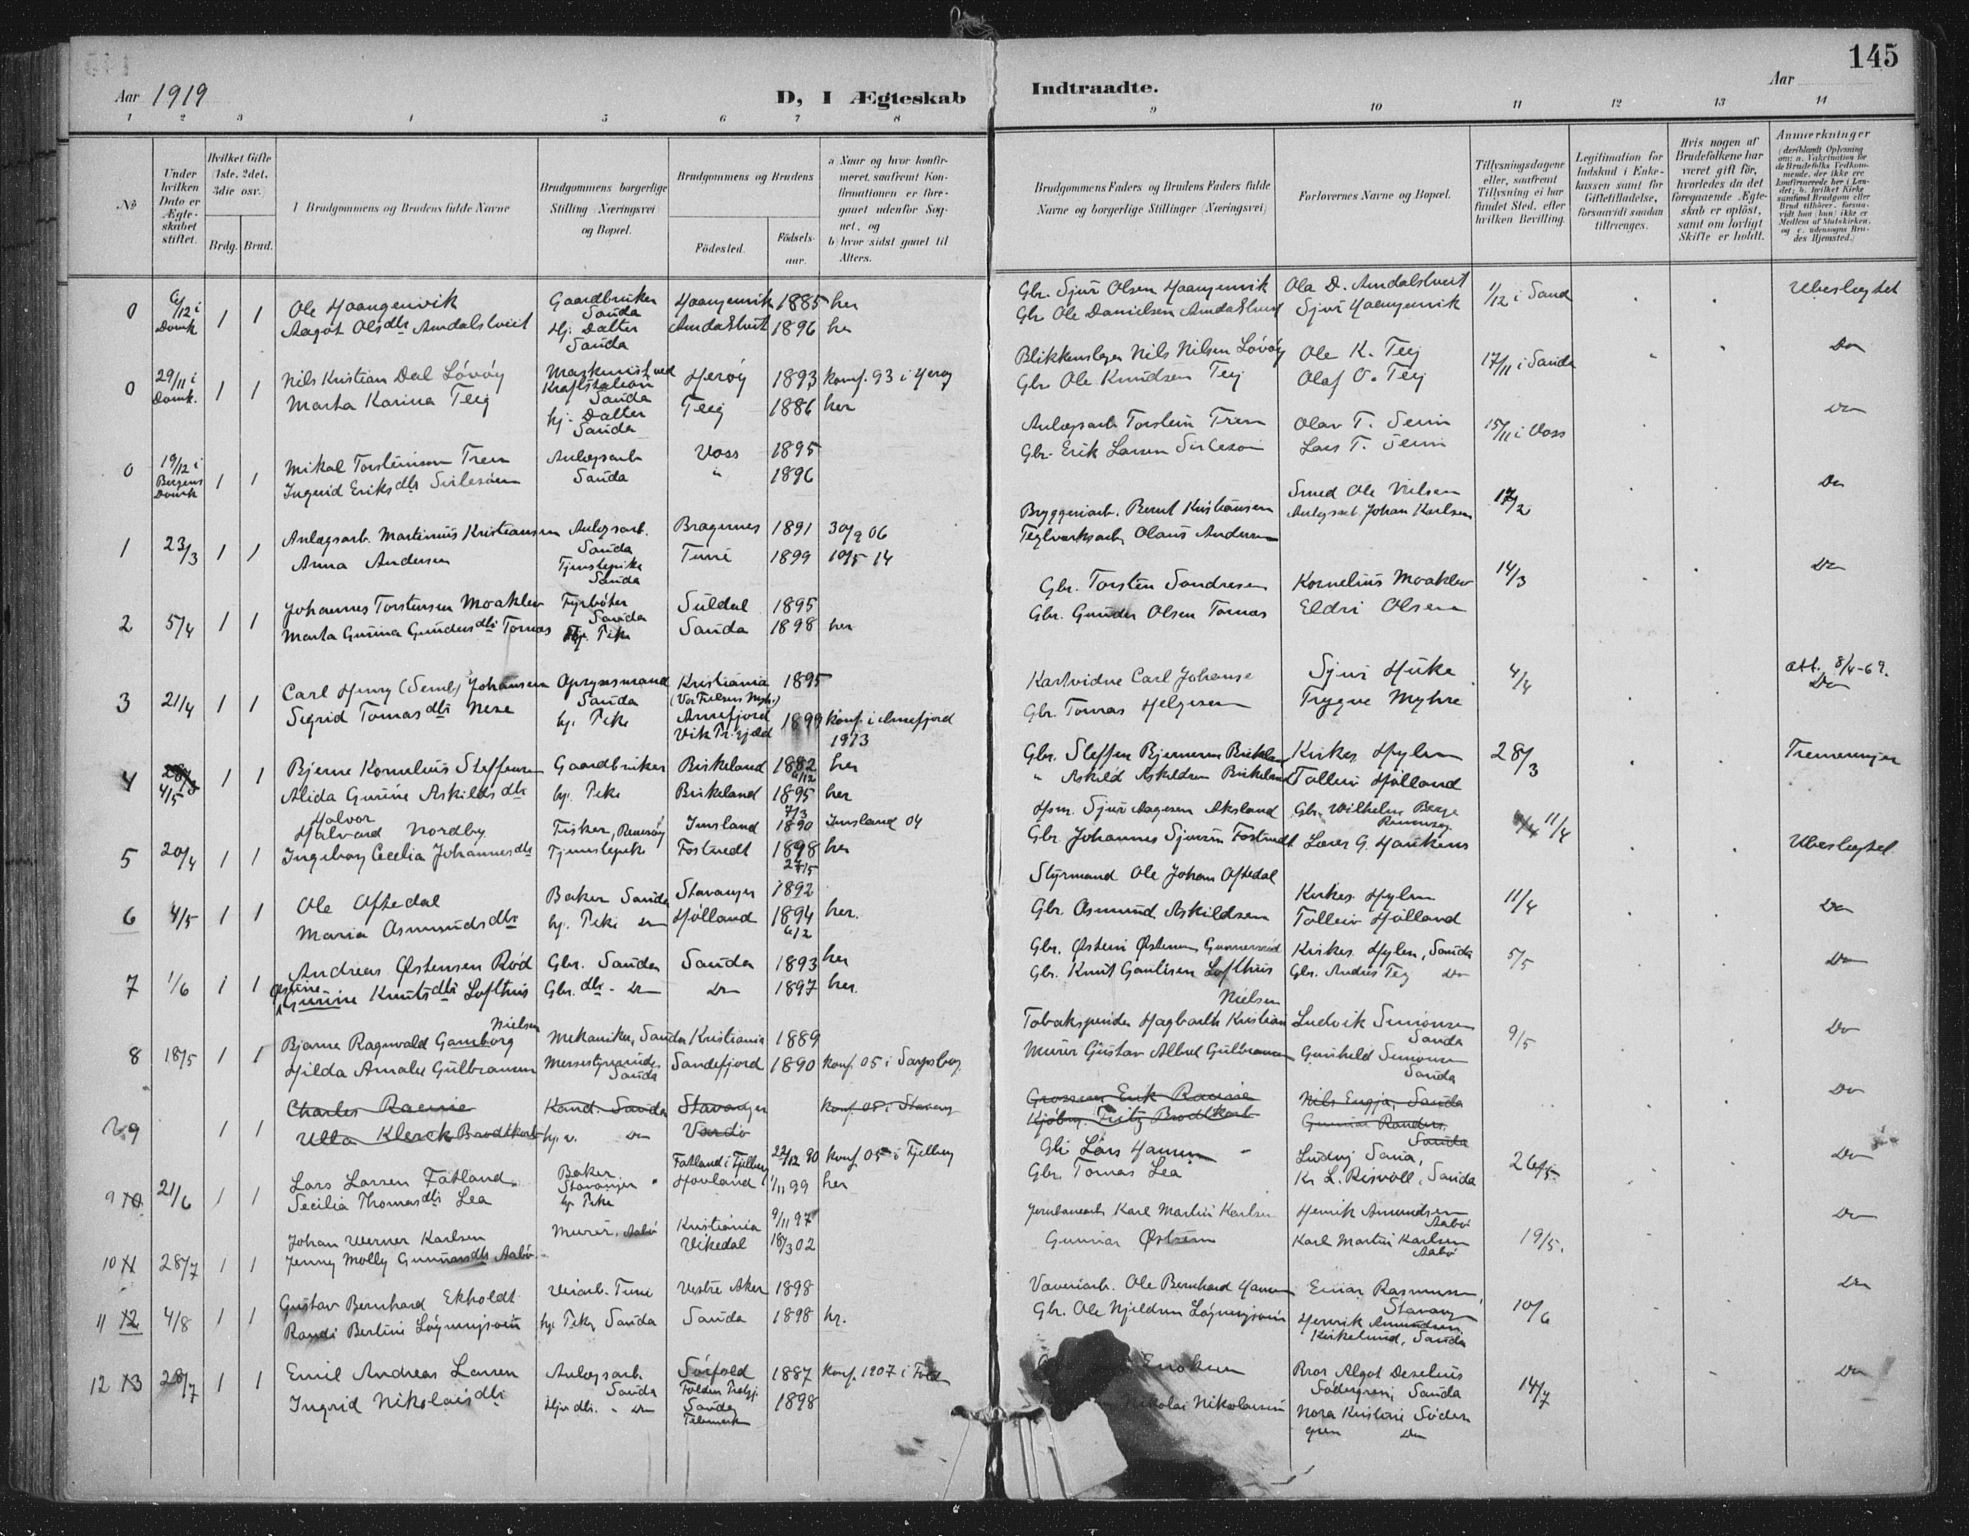 145
Aar 1919
D, I Ægteskab Indtraadte.
Aar
1 2 3 4 5 6 7 8 9 10 11 12 13 14
No
Under hvilken Dato er Ægteskabet stiftet.
Hvilket Gifte (1ste, 2det, 3die osv.)
Brdg. Brud.
Brudgommens og Brudens fulde Navne
Brudgommens borgerlige Stilling (Næringsvei) og Bopæl.
Brudgommens og Brudens
Födested.
Födselsaar.
a Naar og hvor konfirmeret, saafremt Konfirmationen er foregaaet udenfor Sognet, og
b) hvor sidst gaaet til Alters.
Brudgommens Faders og Brudens Faders fulde Navne og borgerlige Stillinger (Næringsvei)
Forlovernes Navne og Bopæl.
Tillysningsdagene eller, saafremt Tillysning ei har fundet Sted, efter hvilken Bevilling.
Legitimation for Indskud i Enkekassen samt for Giftetilladelse, forsaavidt saadan tiltrænges.
Hvis nogen af Brudefolkene har været gift för, hvorledes da det foregaaende Ægteskab er oplöst, samt om lovligt Skifte er holdt.
Anmærkninger
0 6/12 i Domk 1 1 Ole Haangenvik Gaardbruker Sauda Haangenvik 1885 her
Aagot Olsdtr Amdalstveit Hj. Datter Sauda 1896 her
Gbr. Sjur Olsen Haangenvik Ola D. Amdalstveit 1/12 i Sand Ubeslegtet
Gbr Ole Danielsen Sjur Haangenvik
0 29/11 i Domk. 1 1 Nils Kristian Dal Lövöy Maskinist ved Kraftstation Sauda Heröy 1893 konf. 93 i Heröy
Marta Karina Teig hj. Datter Sauda Teig 1886 her
Blikkenslager Nils Nilsen Lövöy Ole K. Teig 17/11 i Sauda Do
Gbr. Ole Knudsen Teig Olaf O. Teig
0 19/12 i Bergens Domk 1 1 Mikal Torsteinson Tren Anlægsarb. Sauda Voss 1895
Ingerid Eriksdtr " 1896
Anlægsarb. Torstein Tren Olav T. 15/11 i Voss Do
Gbr. Erik Larsen Lars T.
1 23/3 1 1 Anlægsarb. Martinius Kristiansen Anlægsarb. Sauda Bragernes 1891 30/9 06
Anna Andersen Tjenstepike Sauda Tune 1899 10/5 14
Bryggeriarb. Bernt Kristiansen Smed Ole Nilsen 17/2 Do
Teglverksarb. Olaus Andersen Anlægsarb. Johan Karlsen
2 5/4 1 1 Johannes Torstensen Moaklev Fyrböter Sauda Suldal 1895
Marta Gurina Gundersdtr Tornas Hj. Pike Sauda 1898 her
Gbr. Torsten Sandresen Kornelius Moaklev 14/3 Do
Gbr. Gunder Olsen Tornas Eldri Olsen
3 21/4 1 1 Carl Henry (Seml) Johansen Opsynsmand Sauda Kristiania (Vor Frelsers Myh.) 1895
Sigrid Tomasdtr Nese hj. Pike Arnefjord Vik 1899 konf. i Arnefjord 1913
Carl Johanse Sjur Huke 4/4 att. 8/4-69. Do
Gbr. Tomas Helgesen Trygve Myhre
4 28/3 4/5 1 1 Bjerne Kornelius Steffensen Gaardbruker Birkeland 1882 her
Alida Gurine Askildsdtr hj. Pike Birkeland 6/12 1895 her
Gbr. Steffen Bjernesen Birkeland Kirkes. Hylen 28/3 Tremenninger
" Askild Askildsen Birkeland Tolleiv Hölland
5 20/4 1 1 Halvor Halvard Nordby Fisker, Rennesöy Imsland 7/3 1890 Imsland 04
Ingeborg Cecilia Johannesdtr Tjenstepik Fostvedt 1898 27/5 her
Hsm. Sjur Aagesen Aksland Gbr. Wilhelm Berge Rennesöy 11/4 Ubeslegtet
Gbr. Johannes Sjursen Fostvedt Lærer G. Haukenes
6 4/5 1 1 Ole Oftedal Baker Sauda Stavanger 1892
Maria Osmundsdtr hj. Pike do Hölland 1894 6/2 her.
Styrmand Ole Johan Oftedal Kirkes. Hylen 11/4 Do
Gbr. Osmund Askildsen Tolleiv Hölland
7 1/6 1 1 Andreas Østensen Rød Gbr. Sauda Sauda 1893 her
Østine Gurine Knutsdtr Lofthus Gbr. dtr. Do Do 1897 her.
Gbr. Østein Østensen Kirkes. Hylen, Sauda 5/5 Do
Gbr. Knut Gautesen Lofthus Gbr. Andres Teig Do
8 18/5 1 1 Bjarne Ragnvald Gamborg Nielsen Mekaniker, Sauda Kristiania 1889
Hilda Amalie Gulbransen Messestyrerinde Sauda Sandefjord 1890 konf. 05 i Sarpsborg
Tobakspinder Hagbarth Kristian Nielsen Ludvik Simonsen Sauda 9/5 Do
Murer Gustav Albert Gulbransen Gunhild Simonsen Sauda
9 1 1 Charles Racine Kand. Sauda Stavanger konf. 08 i Stavang
Ulla Klerck Brodtkorb hj. v. Do Vardö
Grosserer Erik Racine Nils Engja, Sauda Do
Kjöbm. Fritz Brodtkorb Gunnar Randers, Sauda
9 10 21/6 1 1 Lars Larsen Fatland Baker Stavanger Fatland i Fjelberg 22/12 90 konf. 05 i Fjelberg
Secilia Thomasdtr Lea hj. Pike Hovland 1/11 99 her
Gbr Lars Hansen Ludvig 26/5 Do
Gbr. Tomas Lea Kr. L. Risvoll, Sauda
10 11 28/7 1 1 Johan Werner Karlsen Murer, Aabö Kristiania 9/11 97
Jenny Molly Gunnarsdtr Aabö Vikedal 18/3 02
Jernbanearb. Karl Martin Karlsen Henrik Amundsen Aabö 19/5. Do
Gunnar Østrem Karl Martin Karlsen Aabö
11 12 4/8 1 1 Gustav Bernhard Ekholdt Tune Vestre Aker 1898
Randi Bertine Löyningsvein hj. Pike, Sauda Sauda 1898 hr.
Væveriarb. Ole Bernhard Hansen Einar Rasmussen, Stavang 10/6 Do
Gbr. Ole Njeldsen Löyningsvein Henrik Amundsen Kirkelund, Sauda
12 13 28/7 1 1 Emil Andreas Larsen Anlægsarb. Sauda Sörfold Folden 1887 konf. 1907 i Fold
Ingrid Nikolaisdtr Hjv. dtr. " Do Telemark 1898
Bror Algot Deselius Södergren, Sauda 14/7 Do
Nikolai Nikolaisen Nora Kristine Södergren Do